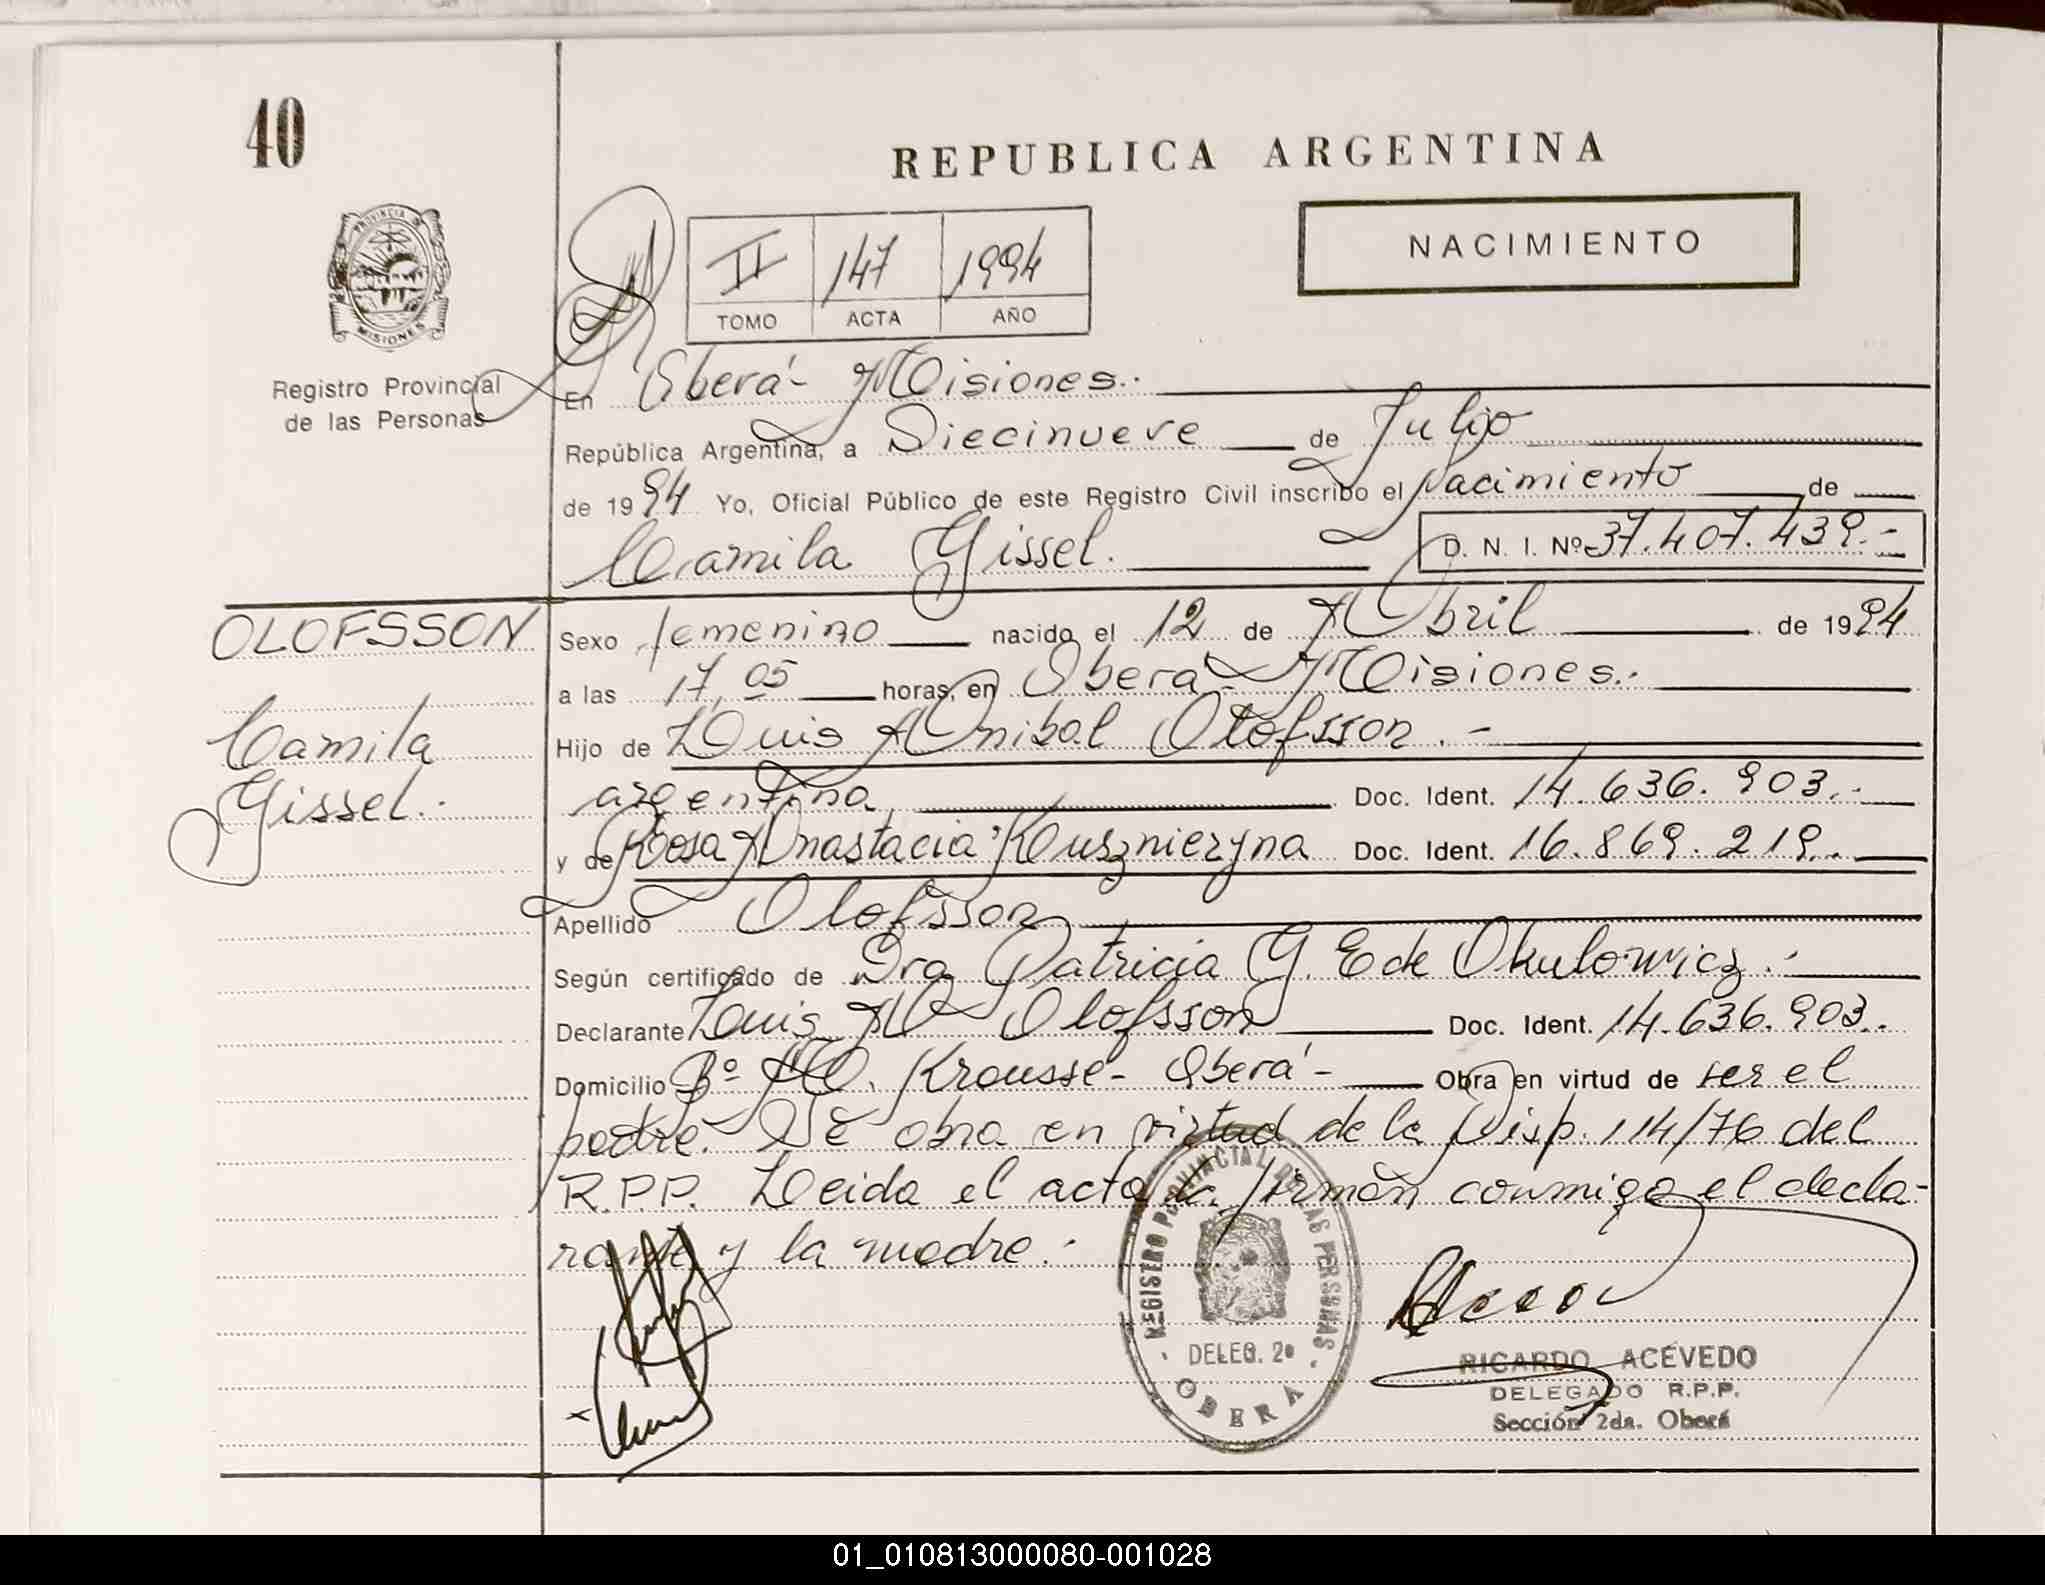 40
REPUBLICA ARGENTINA
NACIMIENTO
II 147 1994
TOMO ACTA AÑO
PROVINCIA DE
MISIONES
Registro Provincial
de las Personas
En Oberá - Misiones.-
República Argentina, a Diecinueve de Julio
de 1994 Yo, Oficial Público de este Registro Civil inscribo el Nacimiento de
Camila Gissel. D. N. I. Nº 37.407.439.-
OLOFSSON
Camila
Gissel.
Sexo femenino nacido el 12 de Abril de 1994
a las 17,05 horas, en Oberá - Misiones.-
Hijo de Luis Anibal Olofsson.-
argentina Doc. Ident. 14.636.903.-
y de Rosa Anastacia Kusznieryna Doc. Ident. 16.869.219.-
Apellido Olofsson
Según certificado de Dra Patricia G. E de Okulowicz.-
Declarante Luis A Olofsson Doc. Ident. 14.636.903.
Domicilio Bº A. Krausse - Oberá - Obra en virtud de ser el
padre. Se obra en virtud de la Disp. 114/76 del
R.P.P. Leida el acta la firman conmigo el decla-
rante y la madre.-
REGISTRO PROVINCIAL DE LAS PERSONAS
DELEG. 2ª
OBERA
RICARDO ACEVEDO
DELEGADO R.P.P.
Sección 2da. Oberá
01_010813000080-001028